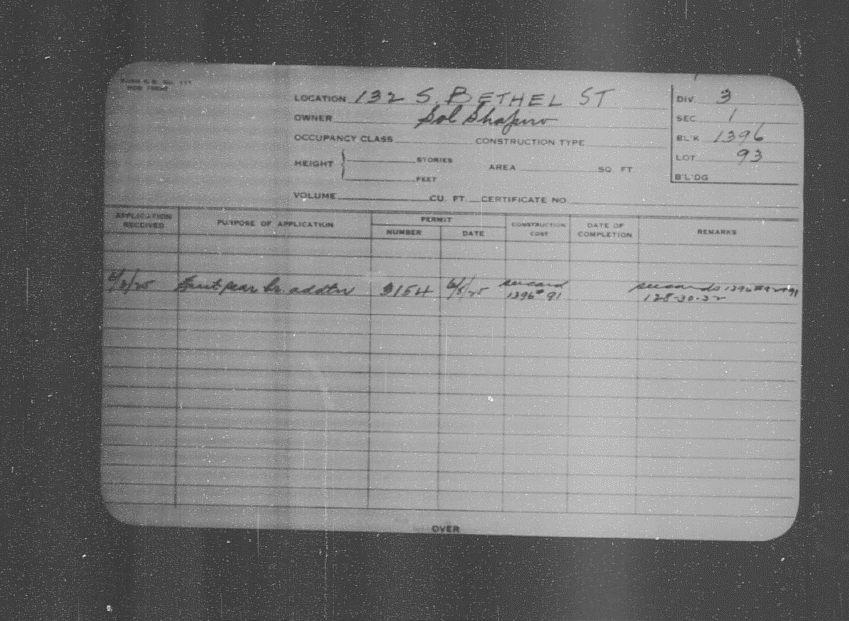 LOCATION 132 S. BETHEL ST
OWNER Sol Shapiro
OCCUPANCY CLASS CONSTRUCTION TYPE
HEIGHT STORIES AREA SQ. FT
FEET
VOLUME CU. FT. CERTIFICATE NO.
DIV. 3
SEC. 1
BL'K 1396
LOT 93
B'LDG
APPLICATION RECEIVED PURPOSE OF APPLICATION PERMIT NUMBER DATE CONSTRUCTION COST DATE OF COMPLETION REMARKS
rear br. addtn 9154 6/5/25 see card 1396 # 91 see cards 1396 # 92 91
128-30-32
OVER